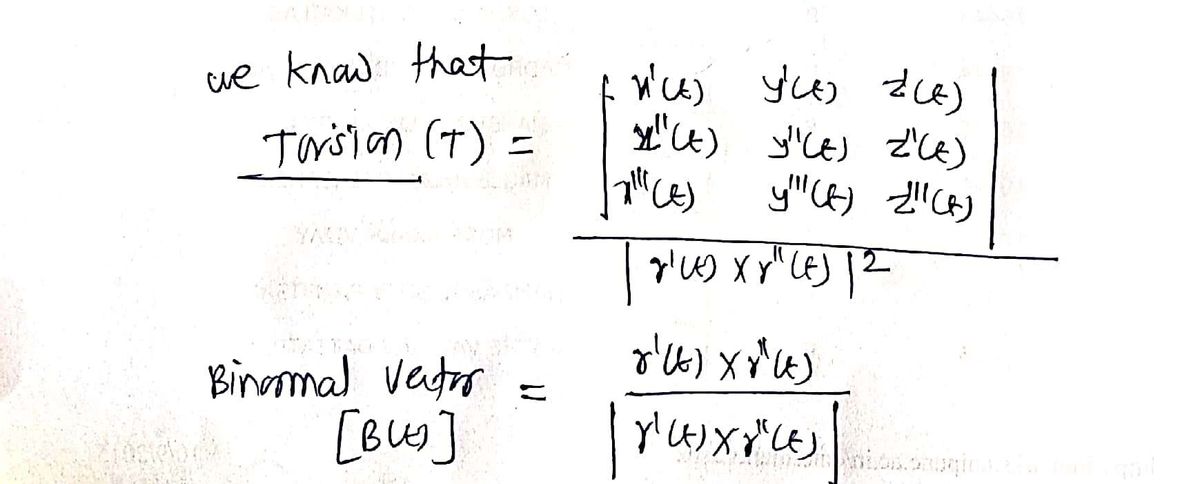 we know that
Torsion (T) = | x'(t) y'(t) z'(t) |
| x''(t) y''(t) z''(t) |
| x'''(t) y'''(t) z'''(t) |
| r'(t) x r''(t) |2
Binormal Vector = r'(t) x r''(t)
[B(t)] | r'(t) x r''(t) |